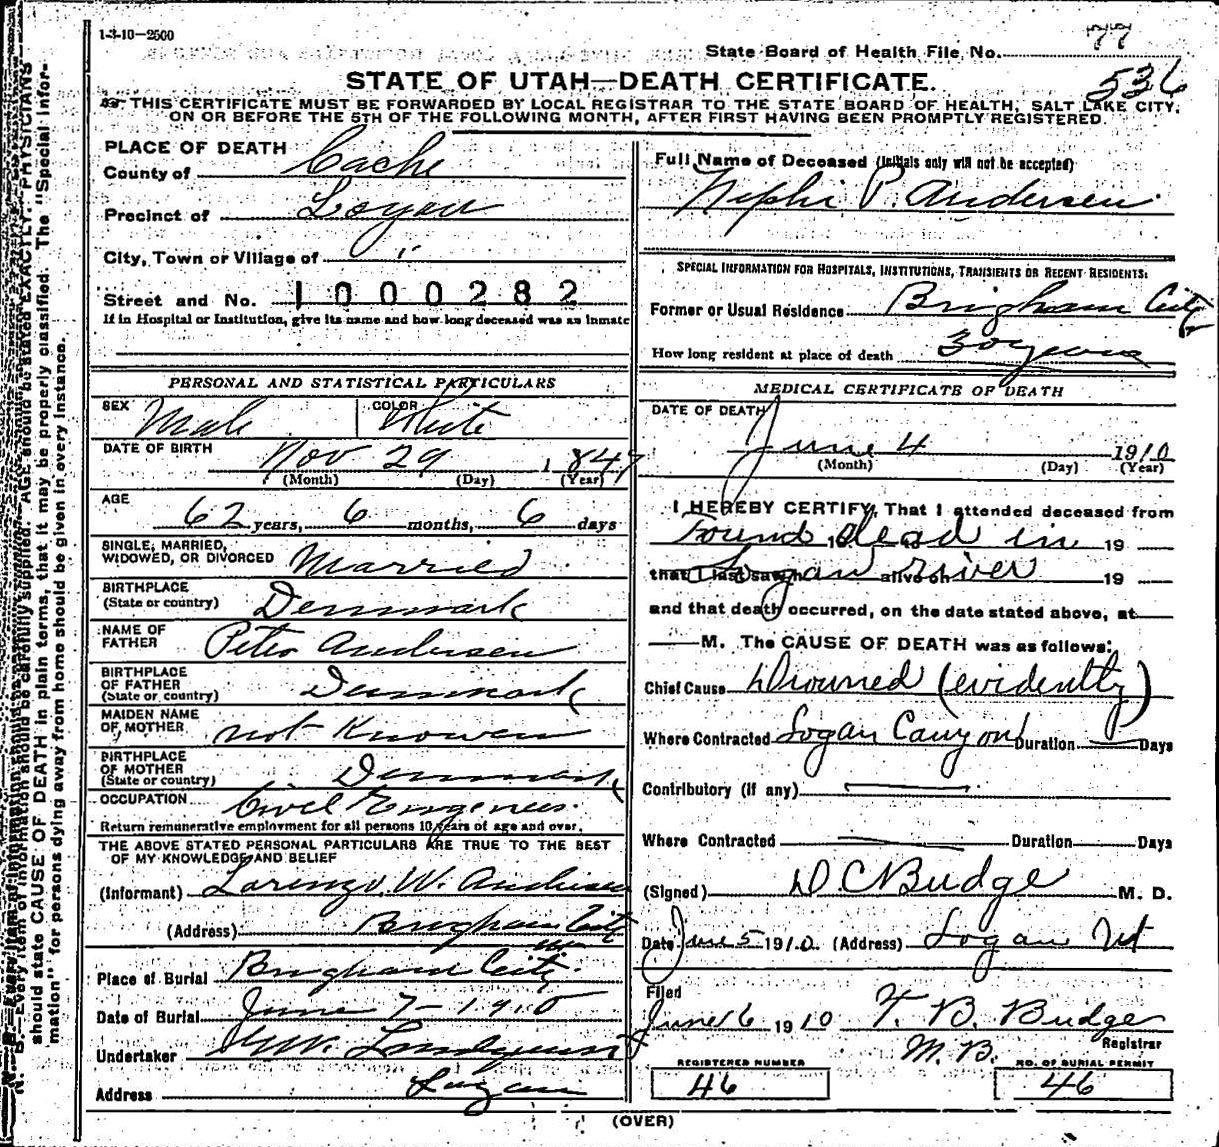 1-3-10—2500
State Board of Health File No. 77
STATE OF UTAH—DEATH CERTIFICATE.
536
THIS CERTIFICATE MUST BE FORWARDED BY LOCAL REGISTRAR TO THE STATE BOARD OF HEALTH, SALT LAKE CITY,
ON OR BEFORE THE 5TH OF THE FOLLOWING MONTH, AFTER FIRST HAVING BEEN PROMPTLY REGISTERED.
PLACE OF DEATH
County of Cache
Precinct of Logan
City, Town or Village of "
Street and No. 1000282
If in Hospital or Institution, give its name and how long deceased was an inmate
PERSONAL AND STATISTICAL PARTICULARS
SEX Male COLOR White
DATE OF BIRTH Nov 29, 1847
(Month) (Day) (Year)
AGE
62 years, 6 months, 6 days
SINGLE, MARRIED,
WIDOWED, OR DIVORCED Married
BIRTHPLACE
(State or country) Denmark
NAME OF
FATHER Peter Andersen
BIRTHPLACE
OF FATHER
(State or country) Denmark
MAIDEN NAME
OF MOTHER not Knowen
BIRTHPLACE
OF MOTHER
(State or country) Denmark
OCCUPATION Civel Engineer.
Return remunerative employment for all persons 10 years of age and over.
THE ABOVE STATED PERSONAL PARTICULARS ARE TRUE TO THE BEST
OF MY KNOWLEDGE AND BELIEF
(Informant) Lorenzo W. Andersen
(Address) Brigham City
Ut
Place of Burial Brigham City.
Date of Burial June 7-1910
Undertaker Lundquist
Address Logan
Full Name of Deceased (Initials only will not be accepted)
Nephi P. Andersen
SPECIAL INFORMATION FOR HOSPITALS, INSTITUTIONS, TRANSIENTS OR RECENT RESIDENTS:
Former or Usual Residence Brigham City
How long resident at place of death 30 years
MEDICAL CERTIFICATE OF DEATH
DATE OF DEATH
June 4 1910
(Month) (Day) (Year)
I HEREBY CERTIFY, That I attended deceased from
Found dead in 19
that I last saw h alive on 19
Logan river
and that death occurred, on the date stated above, at
M. The CAUSE OF DEATH was as follows:
Chief Cause Drowned (evidently)
Where Contracted Logan Canyon Duration — Days
Contributory (if any) —
Where Contracted — Duration Days
(Signed) D C Budge M. D.
Date June 5 1910. (Address) Logan Ut
Filed
June 6 1910 T. B. Budge
Registrar
M. D.
REGISTERED NUMBER
46
NO. OF BURIAL PERMIT
46
(OVER)
N. B.—Every item of information should be carefully supplied. AGE should be stated EXACTLY. PHYSICIANS
should state CAUSE OF DEATH in plain terms, that it may be properly classified. The "Special Infor-
mation" for persons dying away from home should be given in every instance.